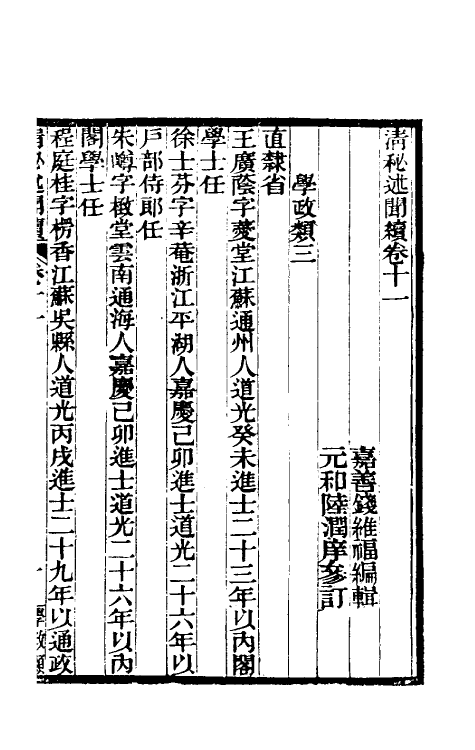 清秘述聞續卷十一
嘉善錢維福編輯
元和陸潤庠參訂
學政類三
直隸省
王廣蔭字薆堂江蘇通州人道光癸未進士二十三年以內閣
學士任
徐士芬字辛菴浙江平湖人嘉慶己卯進士道光二十六年以
戶部侍郎任
朱嶟字椒堂雲南通海人嘉慶己卯進士道光二十六年以內
閣學士任
程庭桂字楞香江蘇吳縣人道光丙戌進士二十九年以通政
清秘述聞續 卷十一 一 學政類